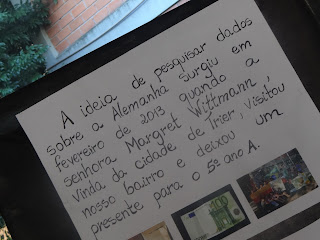 A ideia de pesquisar dados
sobre a Alemanha surgiu em
fevereiro de 2013 quando a
senhora Margret Wittmann,
vinda da cidade de Trier, visitou
nosso bairro e deixou um
presente para o 5º ano A.
100